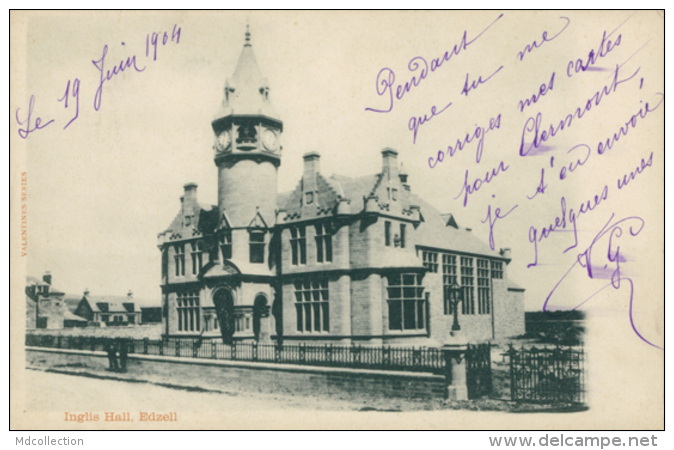 Le 19 Juin 1904
Pendant
que tu me
corriges mes cartes
pour Clermont,
je t'en envoie
quelques unes
VALENTINES SERIES
Inglis Hall, Edzell
Mdcollection
www.delcampe.net